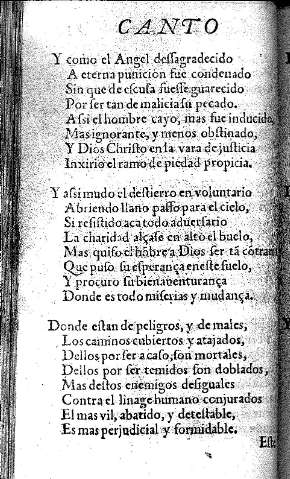 CANTO
Y como el Angel dessagradecido
A eterna punicion fue condenado
Sin que de escusa fuesse guarecido
Por ser tan de malicia su pecado.
Assi el hombre cayo, mas fue inducido,
Mas ignorante, y menos obstinado,
Y Dios Christo en la vara de justicia
Inxirio el ramo de piedad propicia.
Y assi mudo el destierro en voluntario
Abriendo llano passo para el cielo,
Si resistido aca todo aduersario
La charidad alçasse en alto el buelo,
Mas quiso el hõbre a Dios ser tã contrari
Que puso su esperança en este suelo,
Y procuro su bienauenturança
Donde es todo miserias y mudança.
Donde estan de peligros, y de males,
Los caminos cubiertos y atajados,
Dellos por ser acaso, son mortales,
Dellos por ser temidos son doblados,
Mas destos enemigos desiguales
Contra el linage humano conjurados
El mas vil, abatido, y detestable,
Es mas perjudicial y formidable.
Est